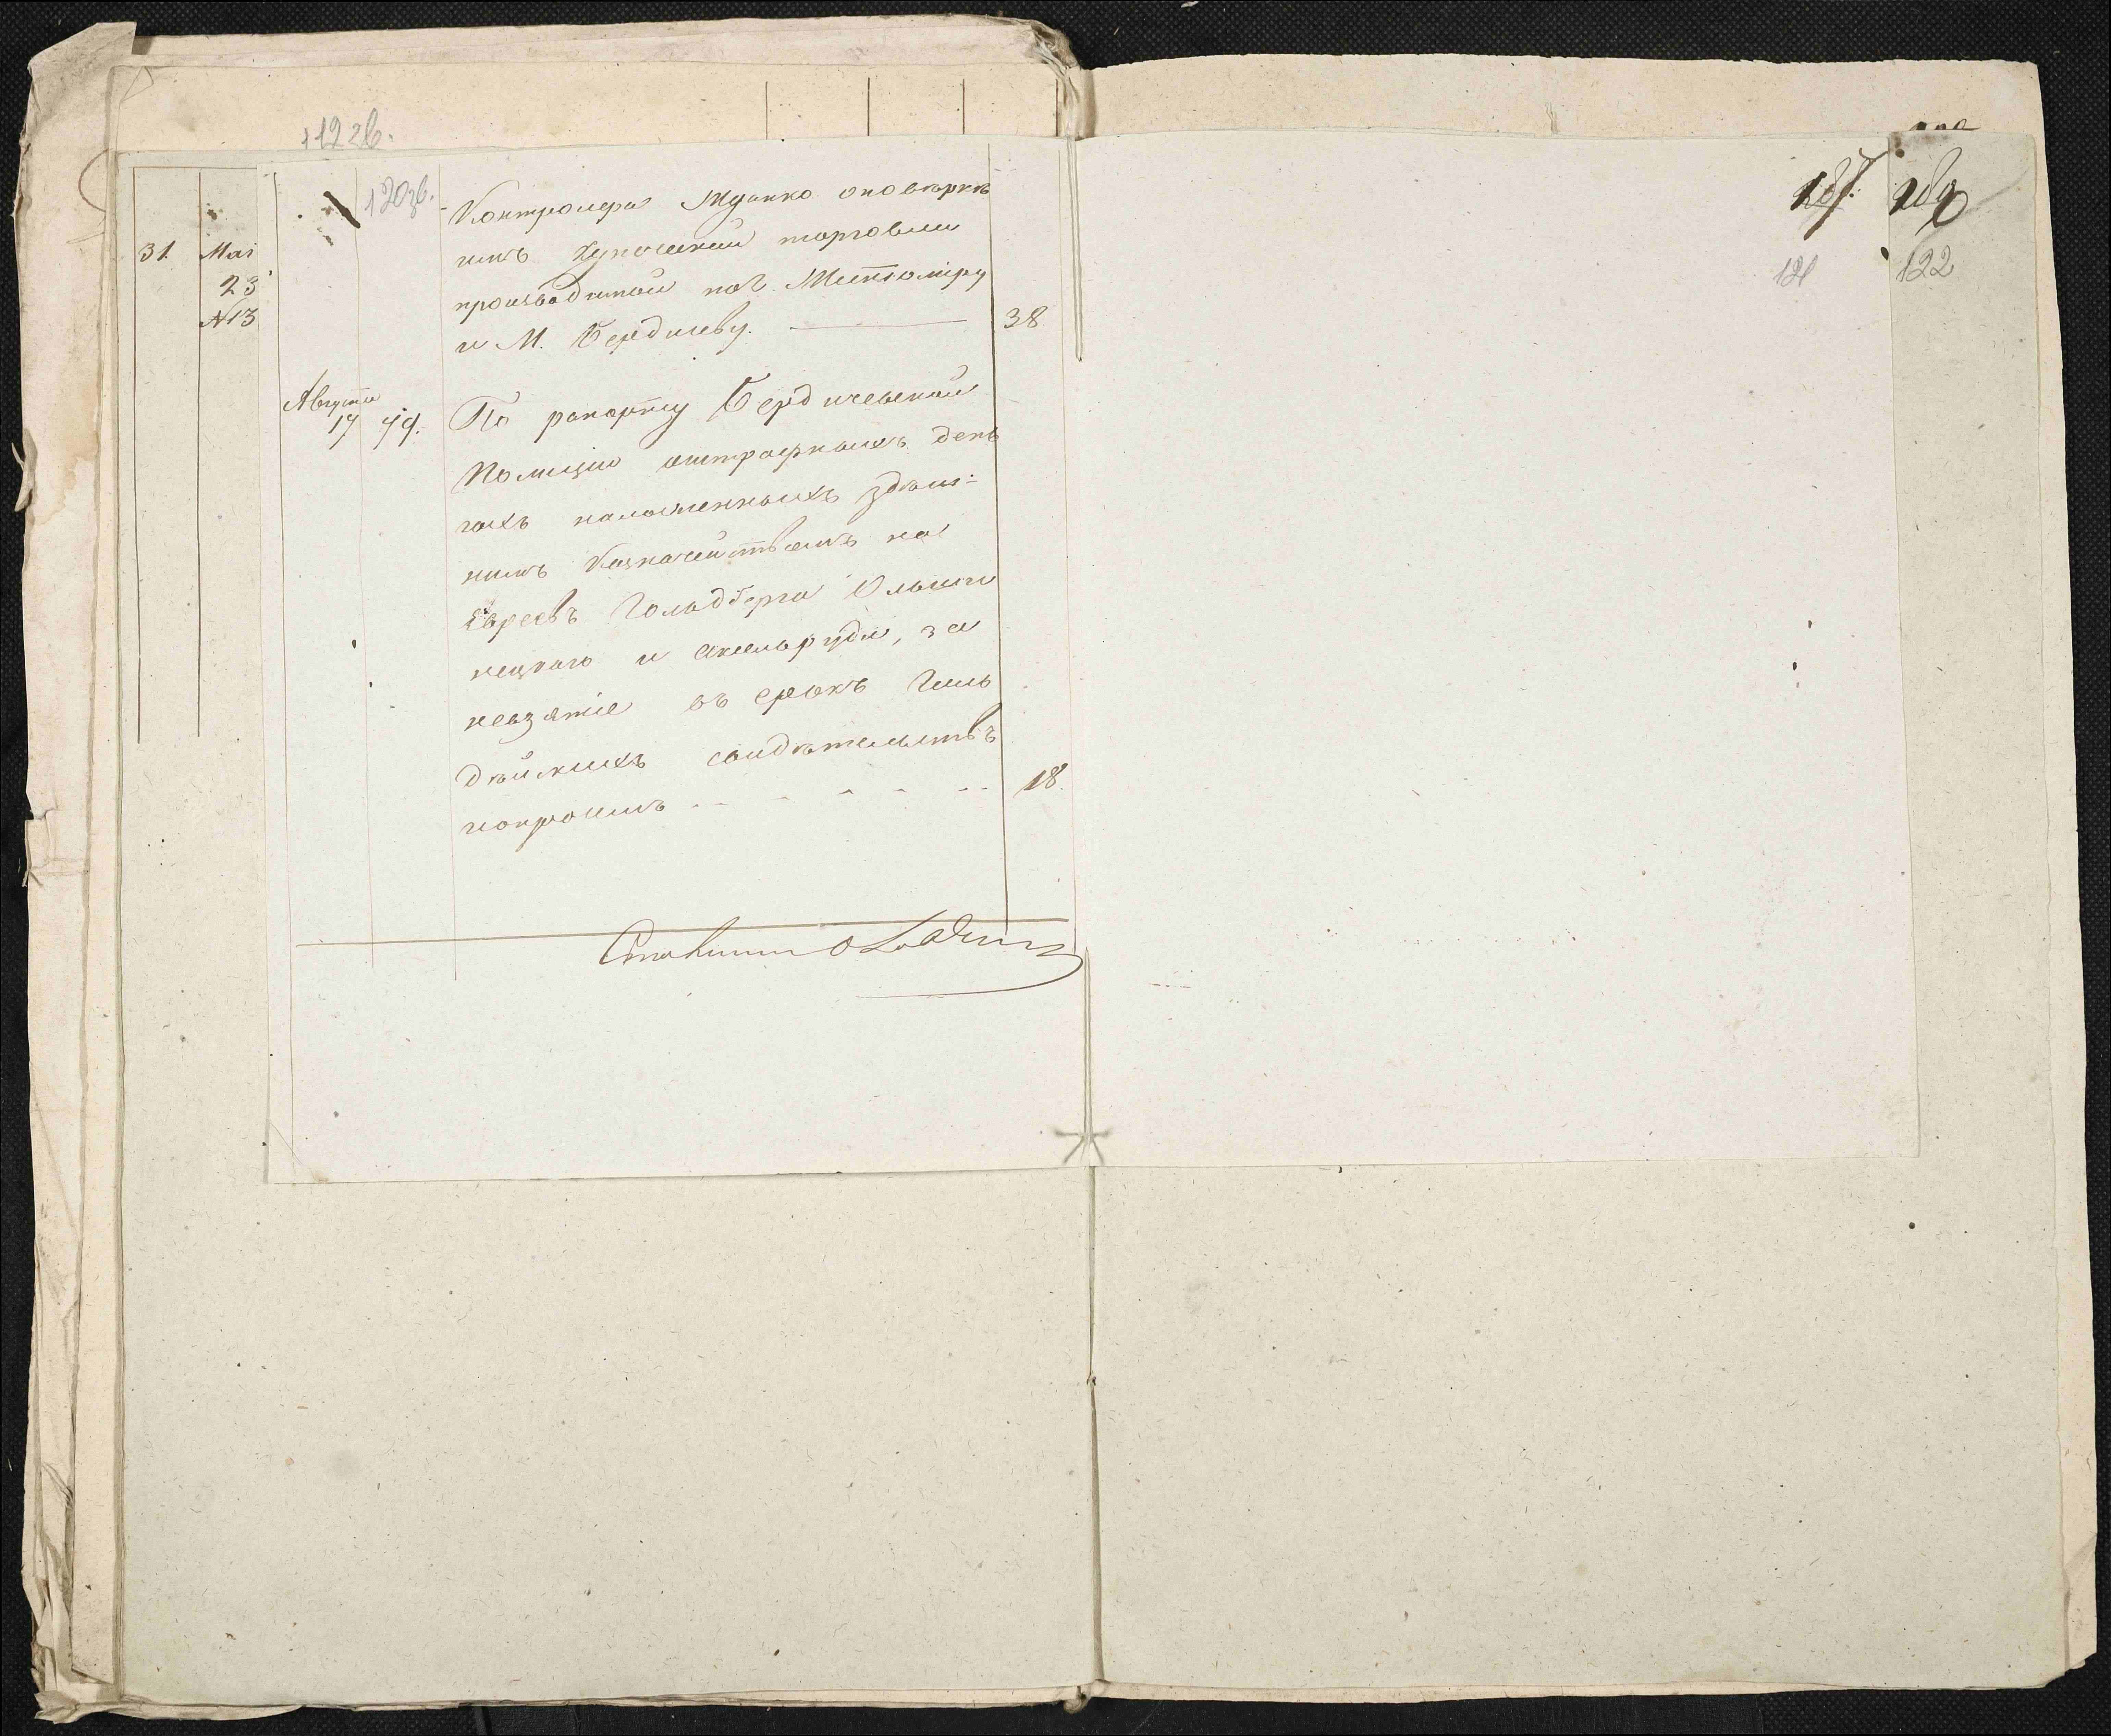 112зв.
120зв.
31. Маі
23
№13
Контролера Жданко о повѣркѣ
имъ Купеческой торговли
производимой по г. Житоміру
и М. Бердичеву. 38
Августа
17 79. По рапорту Бердичевской
Полиціи о штрафныхъ день
гахъ наложенныхъ здѣш-
нимъ Казначействомъ на
Евреевъ Гольдберга Ольша
нецкаго и Аксельруда, за
невзятіе въ срокъ Гиль
дѣйскихъ свидѣтельствъ
18.
187. 189
121 122